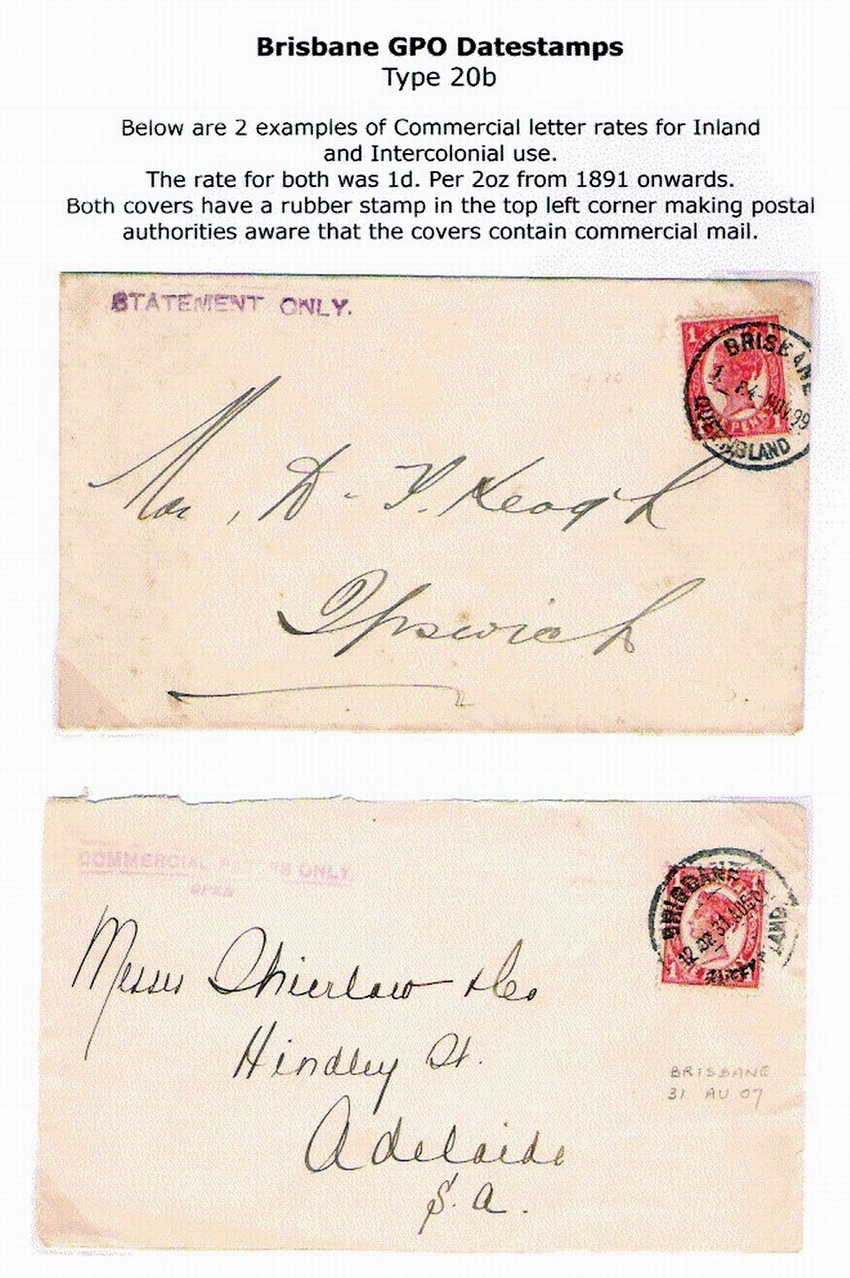 Brisbane GPO Datestamps
Type 20b
Below are 2 examples of Commercial letter rates for Inland
and Intercolonial use.
The rate for both was 1d. Per 2oz from 1891 onwards.
Both covers have a rubber stamp in the top left corner making postal
authorities aware that the covers contain commercial mail.
STATEMENT ONLY.
BRISBANE
4-NOV.99
QUEENSLAND
Mr, D. F. Keogh
Ipswich
COMMERCIAL ONLY
OPEN
BRISBANE
31 AUG
Messrs & Co
Hindley St.
Adelaide
S. A.
BRISBANE
31 AU 07